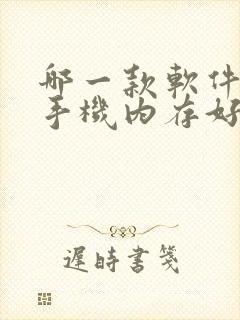 哪一款軟件
手機内存好
遲時書箋